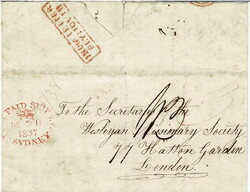 INDIA LETTER
PLYMOUTH
PAID SHIP
1837
SYDNEY
To the Secretary
Wesleyan Missionary Society
77 Hatton Garden
London.